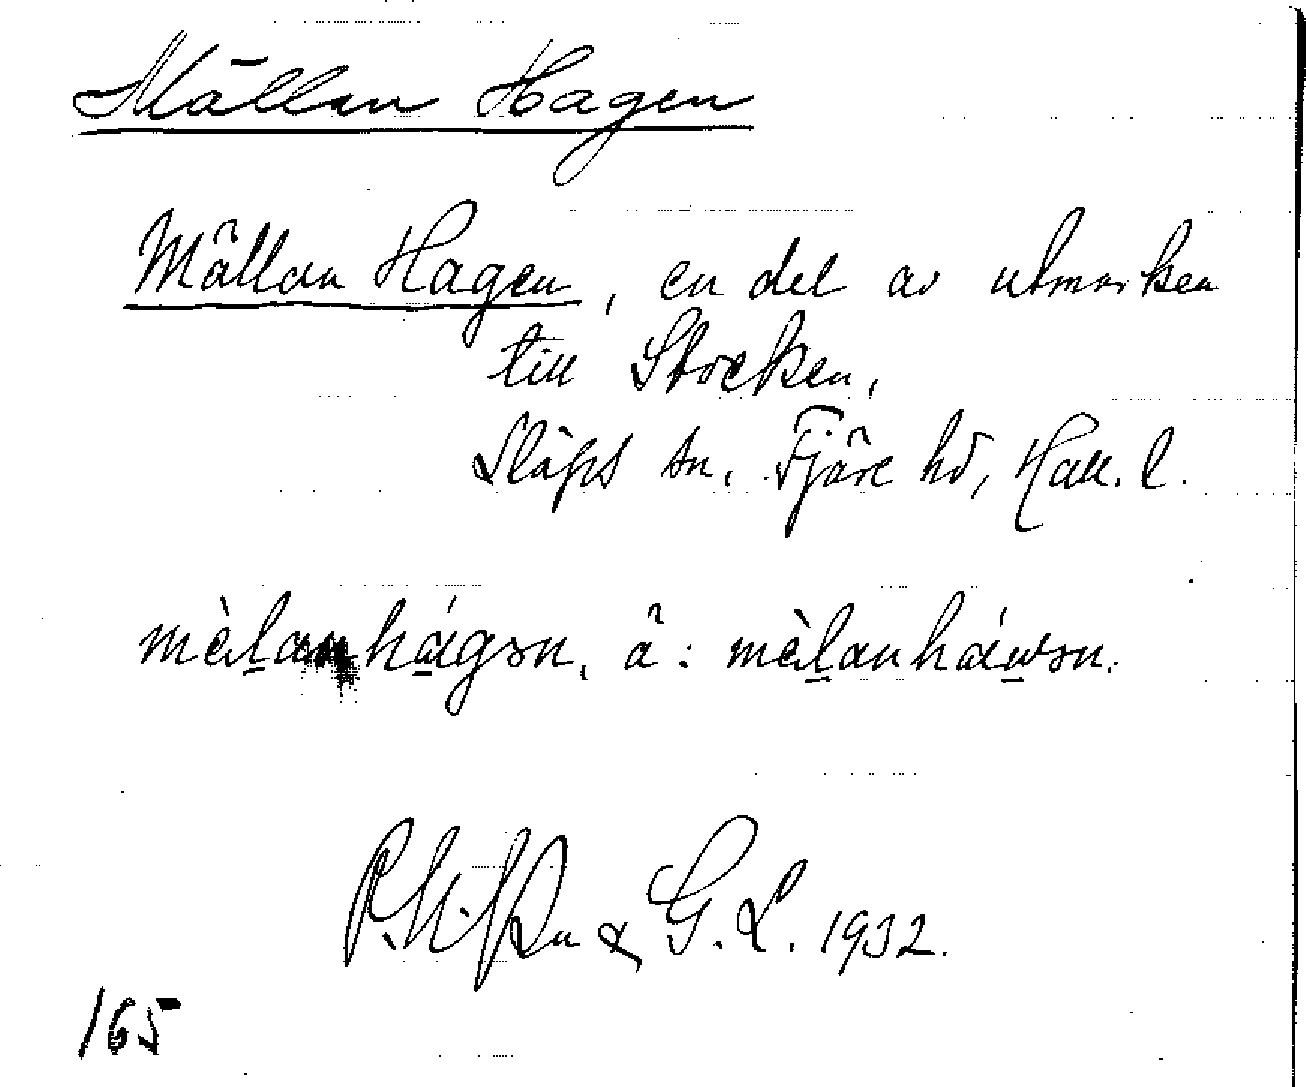 Mällan Hagen
Mällan Hagen, en del av utmarken
till Stocken,
Släps sn. Fjäre hd, Hall. l.
mèḻanhágən, ä: mèḻanháw̱ən.
& G. L. 1932.
165